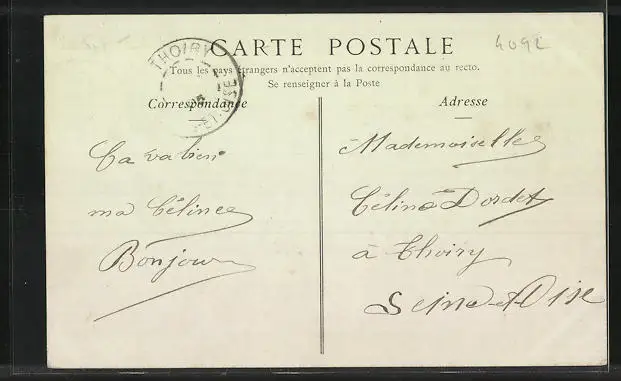 CARTE POSTALE
4092
THOIRY
ET-OISE
Tous les pays étrangers n'acceptent pas la correspondance au recto.
Se renseigner à la Poste
Correspondance
Ça va bien
ma Céline
Bonjour
Adresse
Mademoiselle
Céline Dordet
à Thoiry
Seine-et-Oise